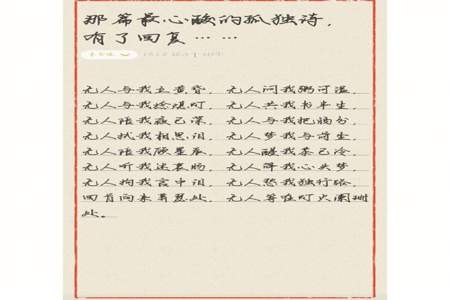 那篇最心酸的孤独诗，
有了回复……
无人与我立黄昏，无人问我粥可温，
无人与我捻熄灯，无人共我书半生，
无人陪我夜已深，无人与我把酒分，
无人拭我相思泪，无人梦我与前尘，
无人陪我顾星辰，无人醒我茶已冷，
无人听我述衷肠，无人解我心头梦，
无人拘我言中泪，无人愁我独行路，
回首向来萧瑟处，无人等在灯火阑珊
处。